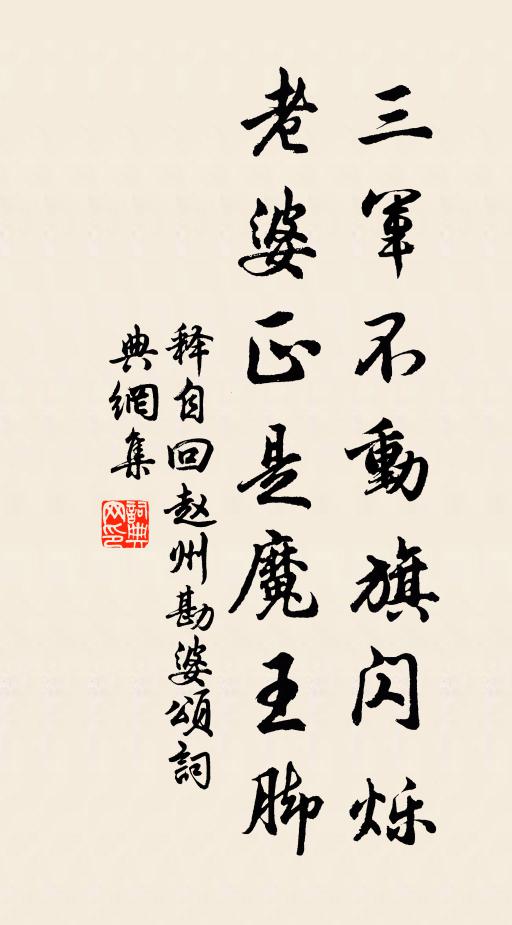 三軍不動旗闪烁
老婆正是魔王脚
释自回赵州勘婆頌詞
典網集
詞典
网印